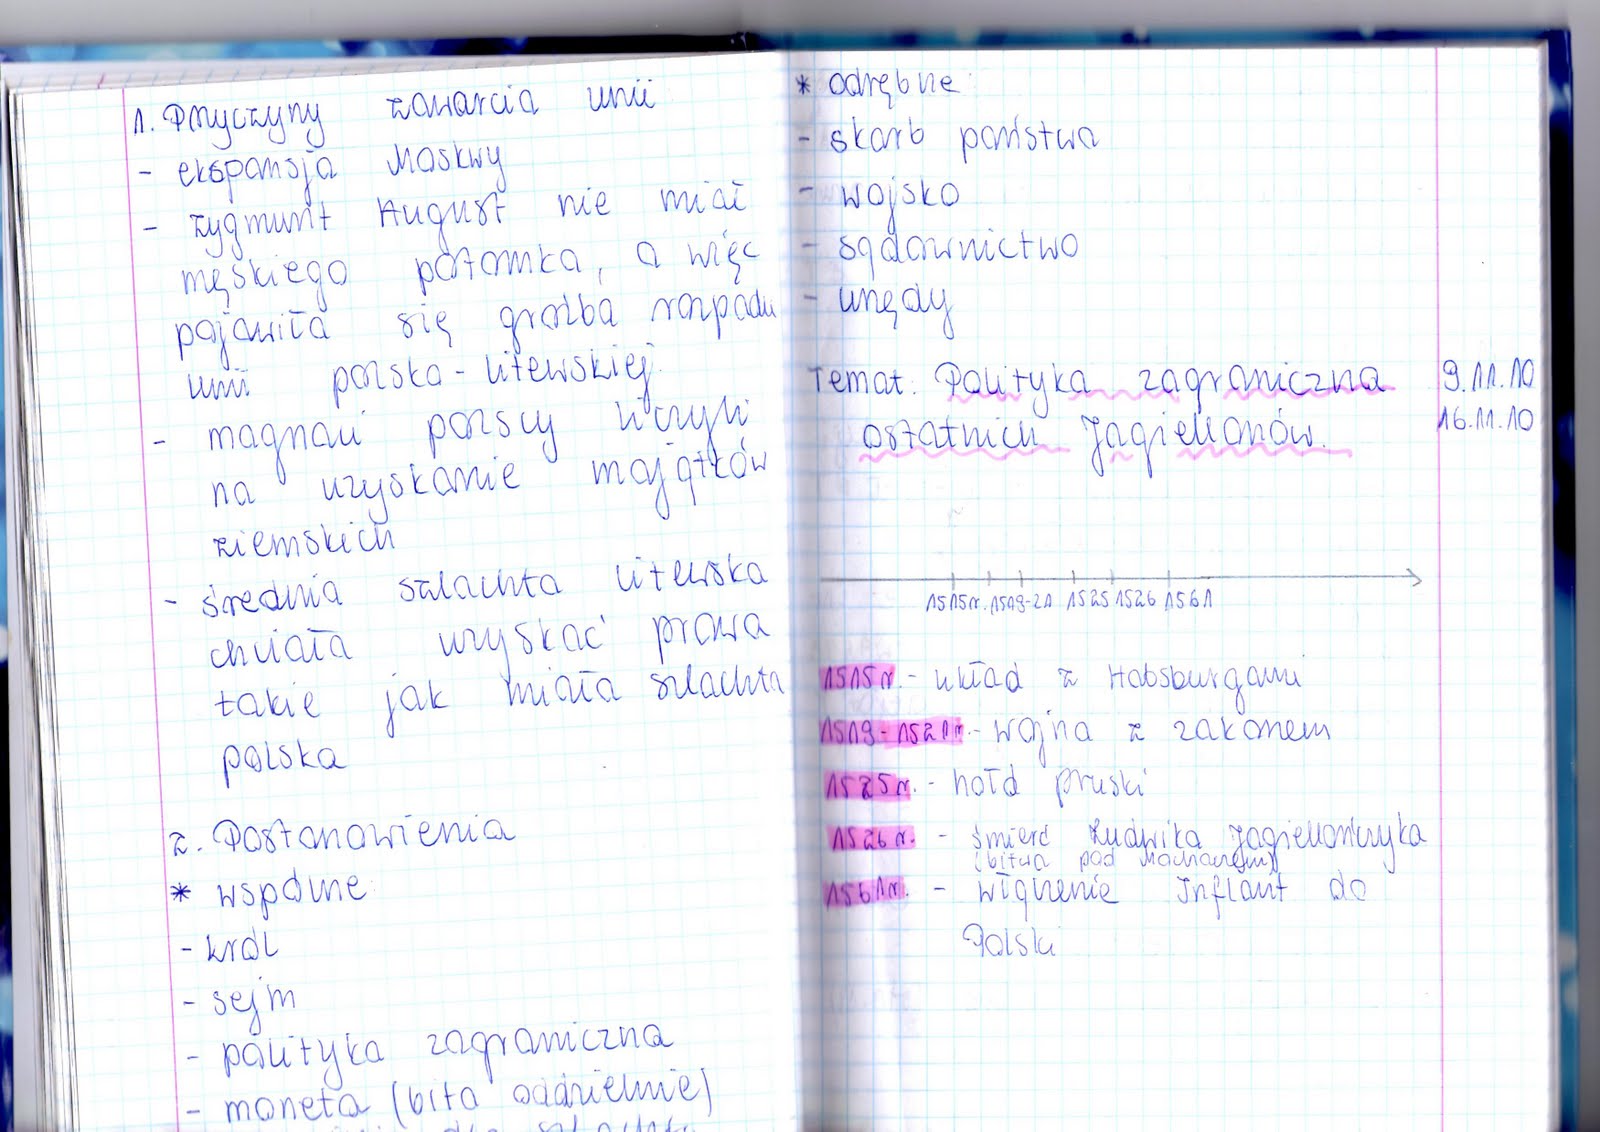 1. Przyczyny zawarcia unii
- ekspansja Moskwy
- Zygmunt August nie miał
męskiego potomka, a więc
pojawiła się groźba rozpadu
unii polsko-litewskiej.
- magnaci polscy liczyli
na uzyskanie majątków
ziemskich
- średnia szlachta litewska
chciała uzyskać prawa
takie jak miała szlachta
polska
2. Postanowienia
* wspólne
- król
- sejm
- polityka zagraniczna
- moneta (bita oddzielnie)
dla szlachty
* odrębne:
- skarb państwa
- wojsko
- sądownictwo
- urzędy
Temat: Polityka zagraniczna 9.11.10
ostatnich Jagiellonów. 16.11.10
1515r. 1519-21 1525 1526 1561
1515r. - układ z Habsburgami
1519-1521r. - wojna z zakonem
1525r. - hołd pruski
1526r. - śmierć Ludwika Jagiellończyka
(bitwa pod Mochaczem)
1561r. - włączenie Inflant do
Polski